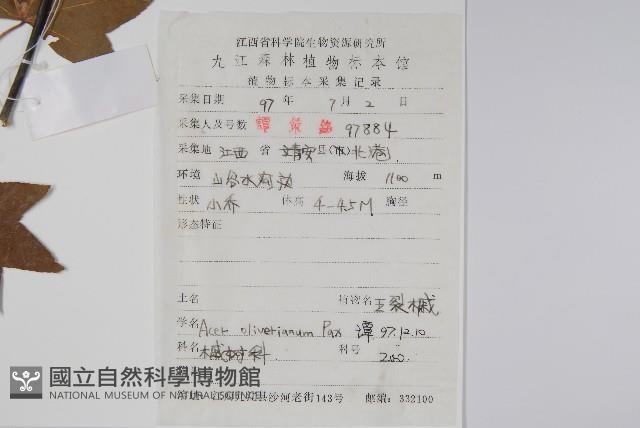 江西省科学院生物资源研究所
九江森林植物标本馆
植物标本采集记录
采集日期 97 年 7 月 2 日
采集人及号数 譚 策 銘 97884
采集地 江西 省 靖安 县(市) 北港
环境 山谷水沟边 海拔 1100 m
性状 小乔 体高 4-4.5M 胸径
形态特征
土名 植物名 五裂槭
学名 Acer oliverianum Pax 譚 97.12.10
科名 槭树科 科号 200
國立自然科學博物館
NATIONAL MUSEUM OF NATURAL SCIENCE
沙河老街143号 邮编:332100